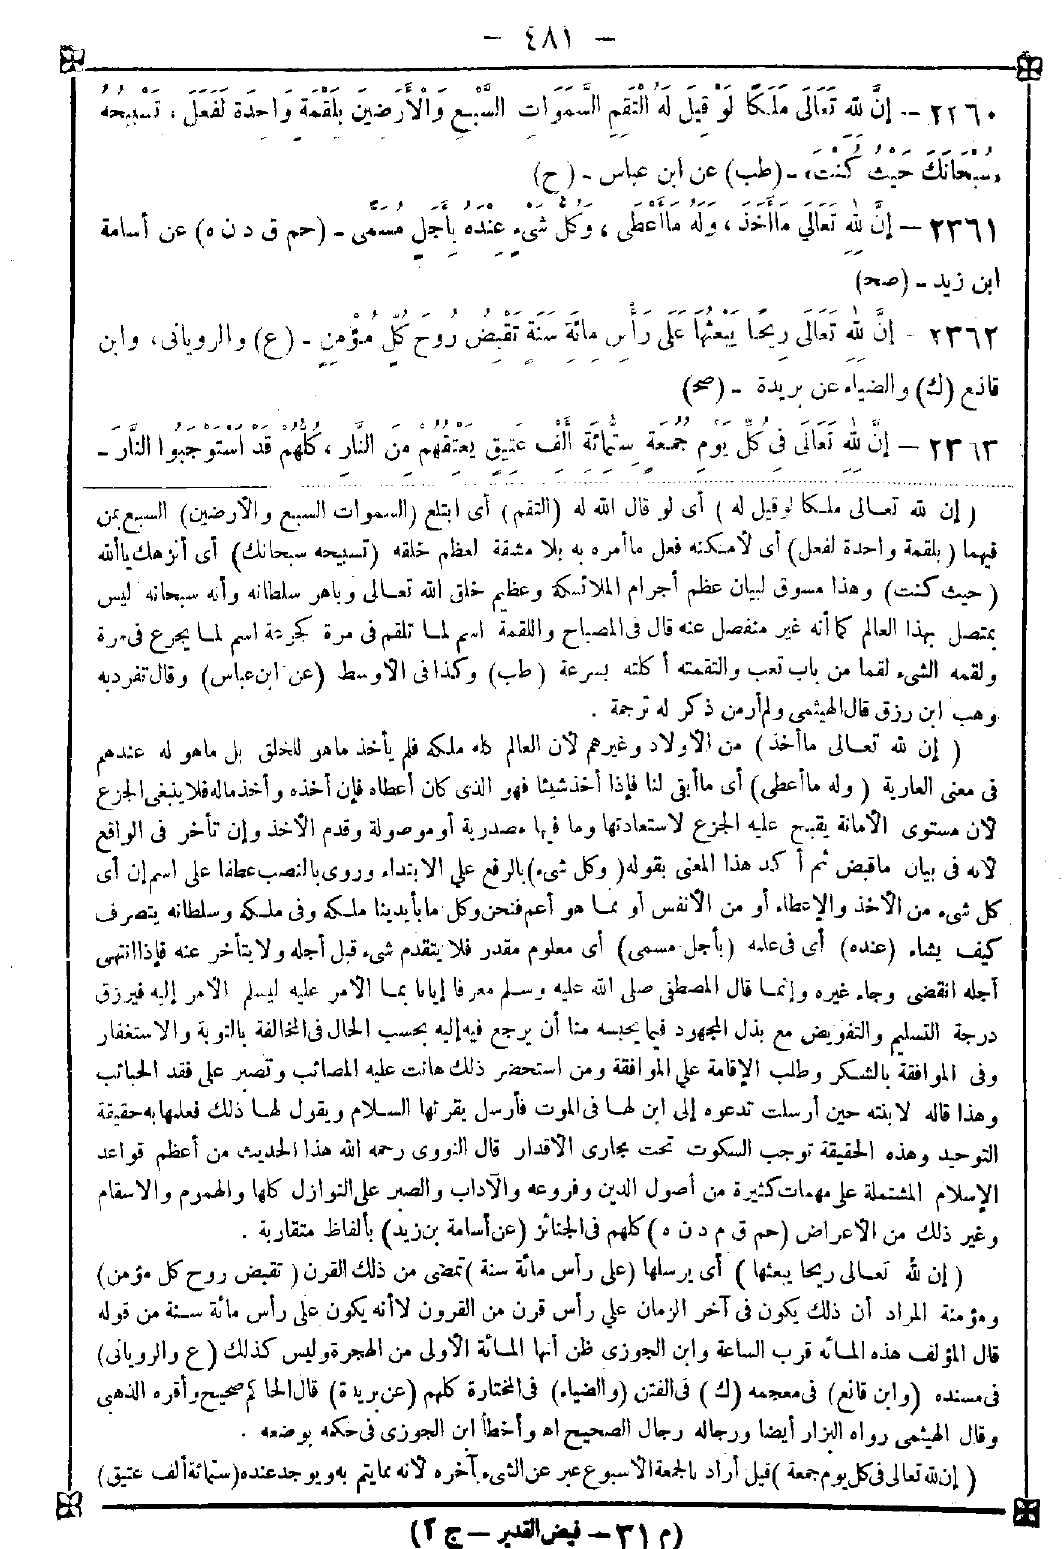 — ٤٨١ —
٢٣٦٠ — إِنَّ لِلهِ تَعَالَى مَلَكًا لَوْ قِيلَ لَهُ الْتَقِمِ السَّمَوَاتِ السَّبْعِ وَالْأَرَضِينَ بِلَقْمَةٍ وَاحِدَةٍ لَفَعَلَ، تَسْبِيحُهُ
«سُبْحَانَكَ حَيْثُ كُنْتَ» ـ (طب) عن ابن عباس ـ (ح)
٢٣٦١ — إِنَّ لِلهِ تَعَالَى مَا أَخَذَ، وَلَهُ مَا أَعْطَى، وَكُلُّ شَيْءٍ عِنْدَهُ بِأَجَلٍ مُسَمًّى ـ (حم ق د ن ه) عن أسامة
ابن زيد ـ (صح)
٢٣٦٢ - إِنَّ لِلهِ تَعَالَى رِيحًا يَبْعَثُهَا عَلَى رَأْسِ مِائَةِ سَنَةٍ تَقْبِضُ رُوحَ كُلِّ مُؤْمِنٍ ـ (ع) والرويانى، وابن
قانع (ك) والضياء عن بريدة ـ (صح)
٢٣٦٣ — إِنَّ لِلهِ تَعَالَى فِي كُلِّ يَوْمِ جُمُعَةٍ سِتُّمِائَةِ أَلْفِ عَتِيقٍ يَعْتِقُهُمْ مِنَ النَّارِ، كُلُّهُمْ قَدِ اسْتَوْجَبُوا النَّارَ ـ
(إن لله تعالى ملكا لو قيل له) أى لو قال الله له (التقم) أى ابتلع (السموات السبع والأرضين) السبع بمن
فيهما (بلقمة واحدة لفعل) أى لأمكنه فعل ما أمره به بلا مشقة لعظم خلقه (تسبيحه سبحانك) أى أنزهك يا ألله
(حيث كنت) وهذا مسوق لبيان عظم أجرام الملائكة وعظيم خلق الله تعالى وباهر سلطانه وأنه سبحانه ليس
بمتصل بهذا العالم كما أنه غير منفصل عنه قال فى المصباح واللقمة اسم لما تلقم فى مرة كجرعة اسم لما يجرع فى مرة
ولقمه الشىء لقما من باب تعب والتقمته أكلته بسرعة (طب) وكذا فى الأوسط (عن ابن عباس) وقال تفرد به
وهب ابن رزق قال الهيثمى ولم أر من ذكر له ترجمة .
(إن لله تعالى ما أخذ) من الأولاد وغيرهم لأن العالم كله ملكه فلم يأخذ ما هو للخلق بل ما هو له عندهم
فى معنى العارية (وله ما أعطى) أى ما أبقى لنا فإذا أخذ شيئا فهو الذى كان أعطاه فإن أخذه وأخذ ماله فلا ينبغى الجزع
لأن مستوى الأمانة يقبح عليه الجزع لاستعادتها وما فيها مصدرية أو موصولة وقدم الأخذ وإن تأخر فى الواقع
لأنه فى بيان ما قبض ثم أكد هذا المعنى بقوله (وكل شىء) بالرفع على الابتداء وروى بالنصب عطفا على اسم إن أى
كل شىء من الأخذ والإعطاء أو من الأنفس أو بما هو أعم فنحن وكل ما بأيدينا ملكه وفى ملكه وسلطانه يتصرف
كيف يشاء (عنده) أى فى علمه (بأجل مسمى) أى معلوم مقدر فلا يتقدم شىء قبل أجله ولا يتأخر عنه فإذا انتهى
أجله انقضى وجاء غيره وإنما قال المصطفى صلى الله عليه وسلم معرفا إيانا بما الأمر عليه ليسلم الأمر إليه فيرزق
درجة التسليم والتفويض مع بذل المجهود فيما يحبسه منا أن يرجع فيه إليه بحسب الحال فى المخالفة بالتوبة والاستغفار
وفى الموافقة بالشكر وطلب الإقامة على الموافقة ومن استحضر ذلك هانت عليه المصائب وتصبر على فقد الحبائب
وهذا قاله لابنته حين أرسلت تدعوه إلى ابن لها فى الموت فأرسل يقرئها السلام ويقول لها ذلك فعلمها به حقيقة
التوحيد وهذه الحقيقة توجب السكوت تحت مجارى الأقدار قال النووى رحمه الله هذا الحديث من أعظم قواعد
الإسلام المشتملة على مهمات كثيرة من أصول الدين وفروعه والآداب والصبر على النوازل كلها والهموم والأسقام
وغير ذلك من الأعراض (حم ق م د ن ه) كلهم فى الجنائز (عن أسامة بن زيد) بألفاظ متقاربة .
(إن لله تعالى ريحا يبعثها) أى يرسلها (على رأس مائة سنة) تمضى من ذلك القرن (تقبض روح كل مؤمن)
ومؤمنة المراد أن ذلك يكون فى آخر الزمان على رأس قرن من القرون لا أنه يكون على رأس مائة سنة من قوله
قال المؤلف هذه المائه قرب الساعة وابن الجوزى ظن أنها المائة الأولى من الهجرة وليس كذلك (ع والرويانى)
فى مسنده (وابن قانع) فى معجمه (ك) فى الفتن (والضياء) فى المختارة كلهم (عن بريدة) قال الحاكم صحيح وأقره الذهبى
وقال الهيثمى رواه البزار أيضا ورجاله رجال الصحيح اه وأخطأ ابن الجوزى فى حكمه بوضعه .
(إن لله تعالى فى كل يوم جمعة) قيل أراد بالجمعة الأسبوع عبر عن الشىء بآخره لأنه مما يتم به ويوجد عنده (ستمائة ألف عتيق)
(م ٣١ — فيض القدير — ج ٢)